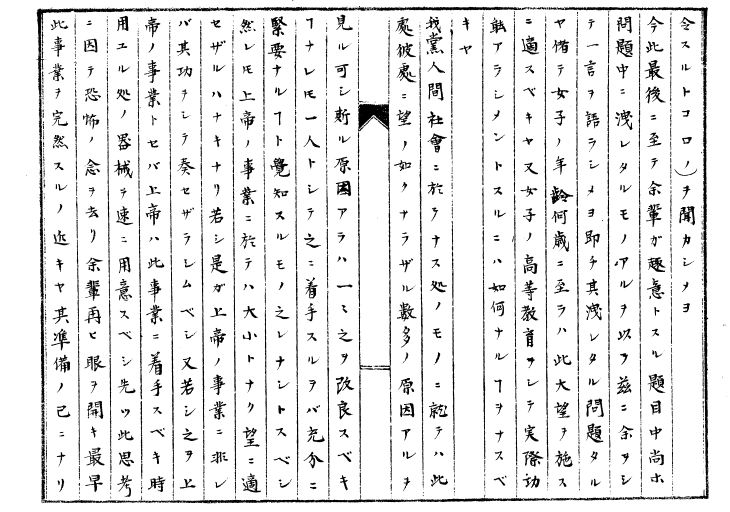 令スルトコロノ)ヲ聞カシメヨ
今此最後ニ至テ余輩ガ趣意トスル題目中尚ホ
問題中ニ洩レタルモノアルヲ以テ茲ニ余ヲシ
テ一言ヲ語ラシメヨ即チ其洩レタル問題タル
ヤ偖テ女子ノ年齡何歳ニ至ラハ此大望ヲ施ス
ニ適スベキヤ又女子ノ高等教育ヲシテ実際功
アラシメントスルニハ如何ナルヿヲナスベ
キヤ
我黨人間社會ニ於テナス処ノモノニ就テハ此
處彼處ニ望ノ如クナラザル數多ノ原因アルヲ
見ル可シ斯ル原因アラハ一々之ヲ改良スベキ
ヿナレ𪜈一人トシテ之ニ着手スルヲバ充分ニ
緊要ナルヿト覺知スルモノ之レナシトスベシ
然レ𪜈上帝ノ事業ニ於テハ大小トナク望ニ適
セザルハナキナリ若シ是ガ上帝ノ事業ニ非レ
バ其功ヲシテ奏セザラシムベシ又若シ之ヲ上
帝ノ事業トセバ上帝ハ此事業ニ着手スベキ時
用ユル処ノ器械ヲ速ニ用意スベシ先ツ此思考
ニ因テ恐怖ノ念ヲ去リ余輩再ヒ眼ヲ開キ最早
此事業ヲ完然スルノ近キヤ其準備ノ已ニナリ